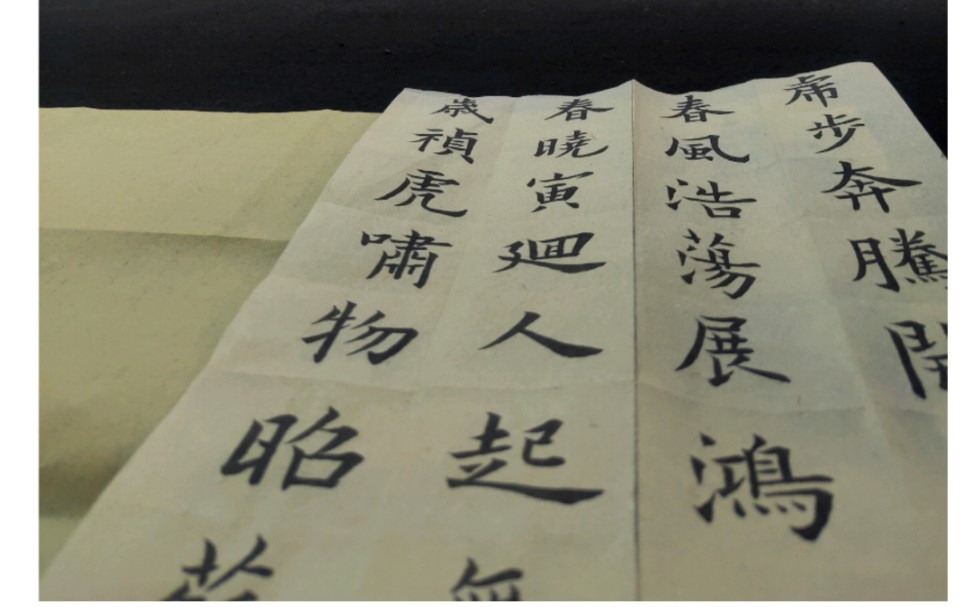 虎步奔騰開
春風浩蕩展鴻
春曉寅廻人起
歳禎虎嘯物昭